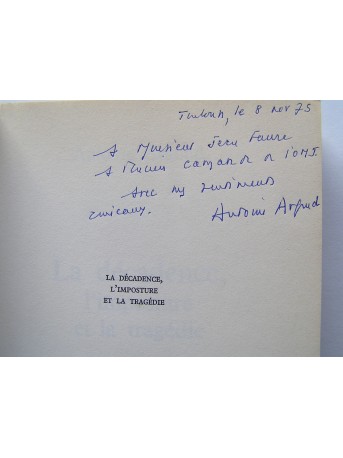 Toulouse, le 8 nov 75
A Monsieur Jean Faure
A l'ancien camarade de l'OMJ.
Avec mes sentiments
amicaux. Antoine Argoud
LA DÉCADENCE,
L'IMPOSTURE
ET LA TRAGÉDIE